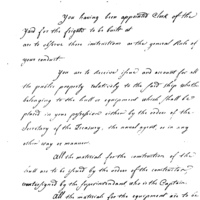 You having been appointed Clerk of the
Yard for the frigate to be built at
are to observe these instructions as the general Rule of
your conduct.
You are to receive and account for all
the public property relatively to the said ship whether
belonging to the hull or equipment which shall be
placed in your possession either by the order of the
Secretary of the Treasury, the naval agent or in any
other way or manner.
All the materials for the construction of the
hull are to be by the order of the constructor
countersigned by the Superintendent who is the Captain
All the materials for the equipment are to